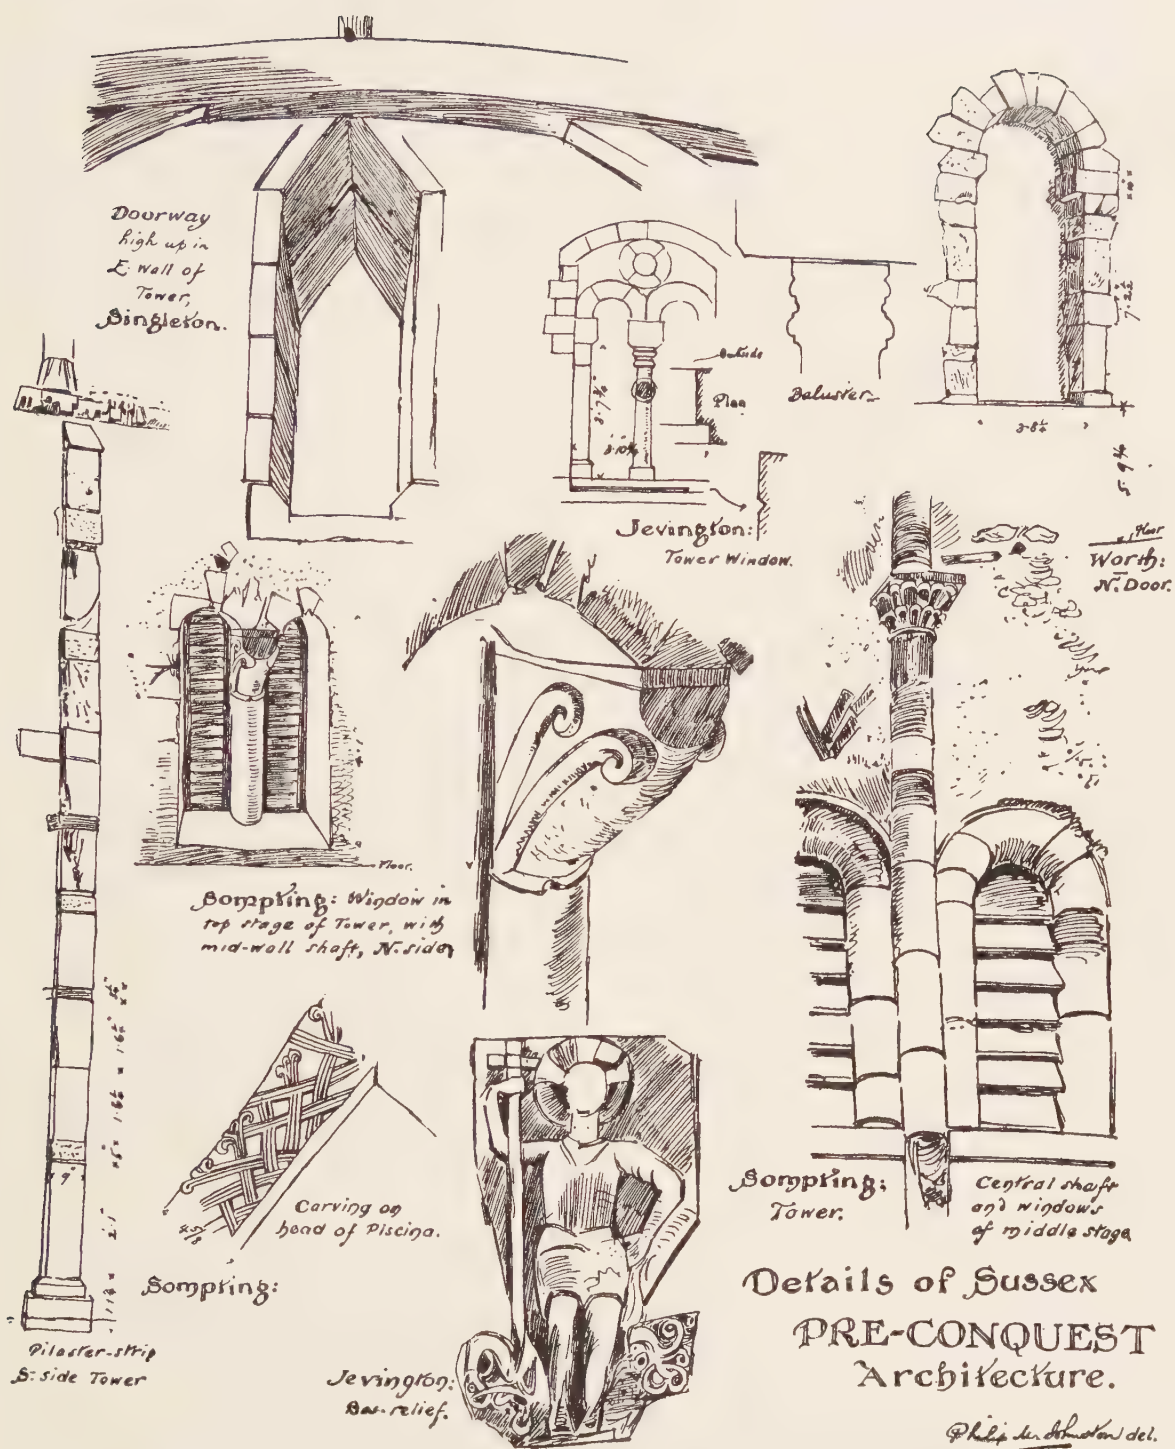 Doorway
high up in
E. Wall of
Tower,
Singleton.
Outside
Plan
Baluster
3·7¾
3·8¼
5·9¾
Jevington:
Tower Window.
Floor
Worth:
N. Door.
Floor.
Sompting: Window in
top stage of Tower, with
mid-wall shaft, N. side,
9"
2·1"
Carving on
head of Piscina.
Sompting:
Pilaster-strip
S. side Tower
Jevington:
Bas-relief.
Sompting:
Tower.
Central shaft
and windows
of middle stage
Details of Sussex
PRE-CONQUEST
Architecture.
Philip M. Johnston del.